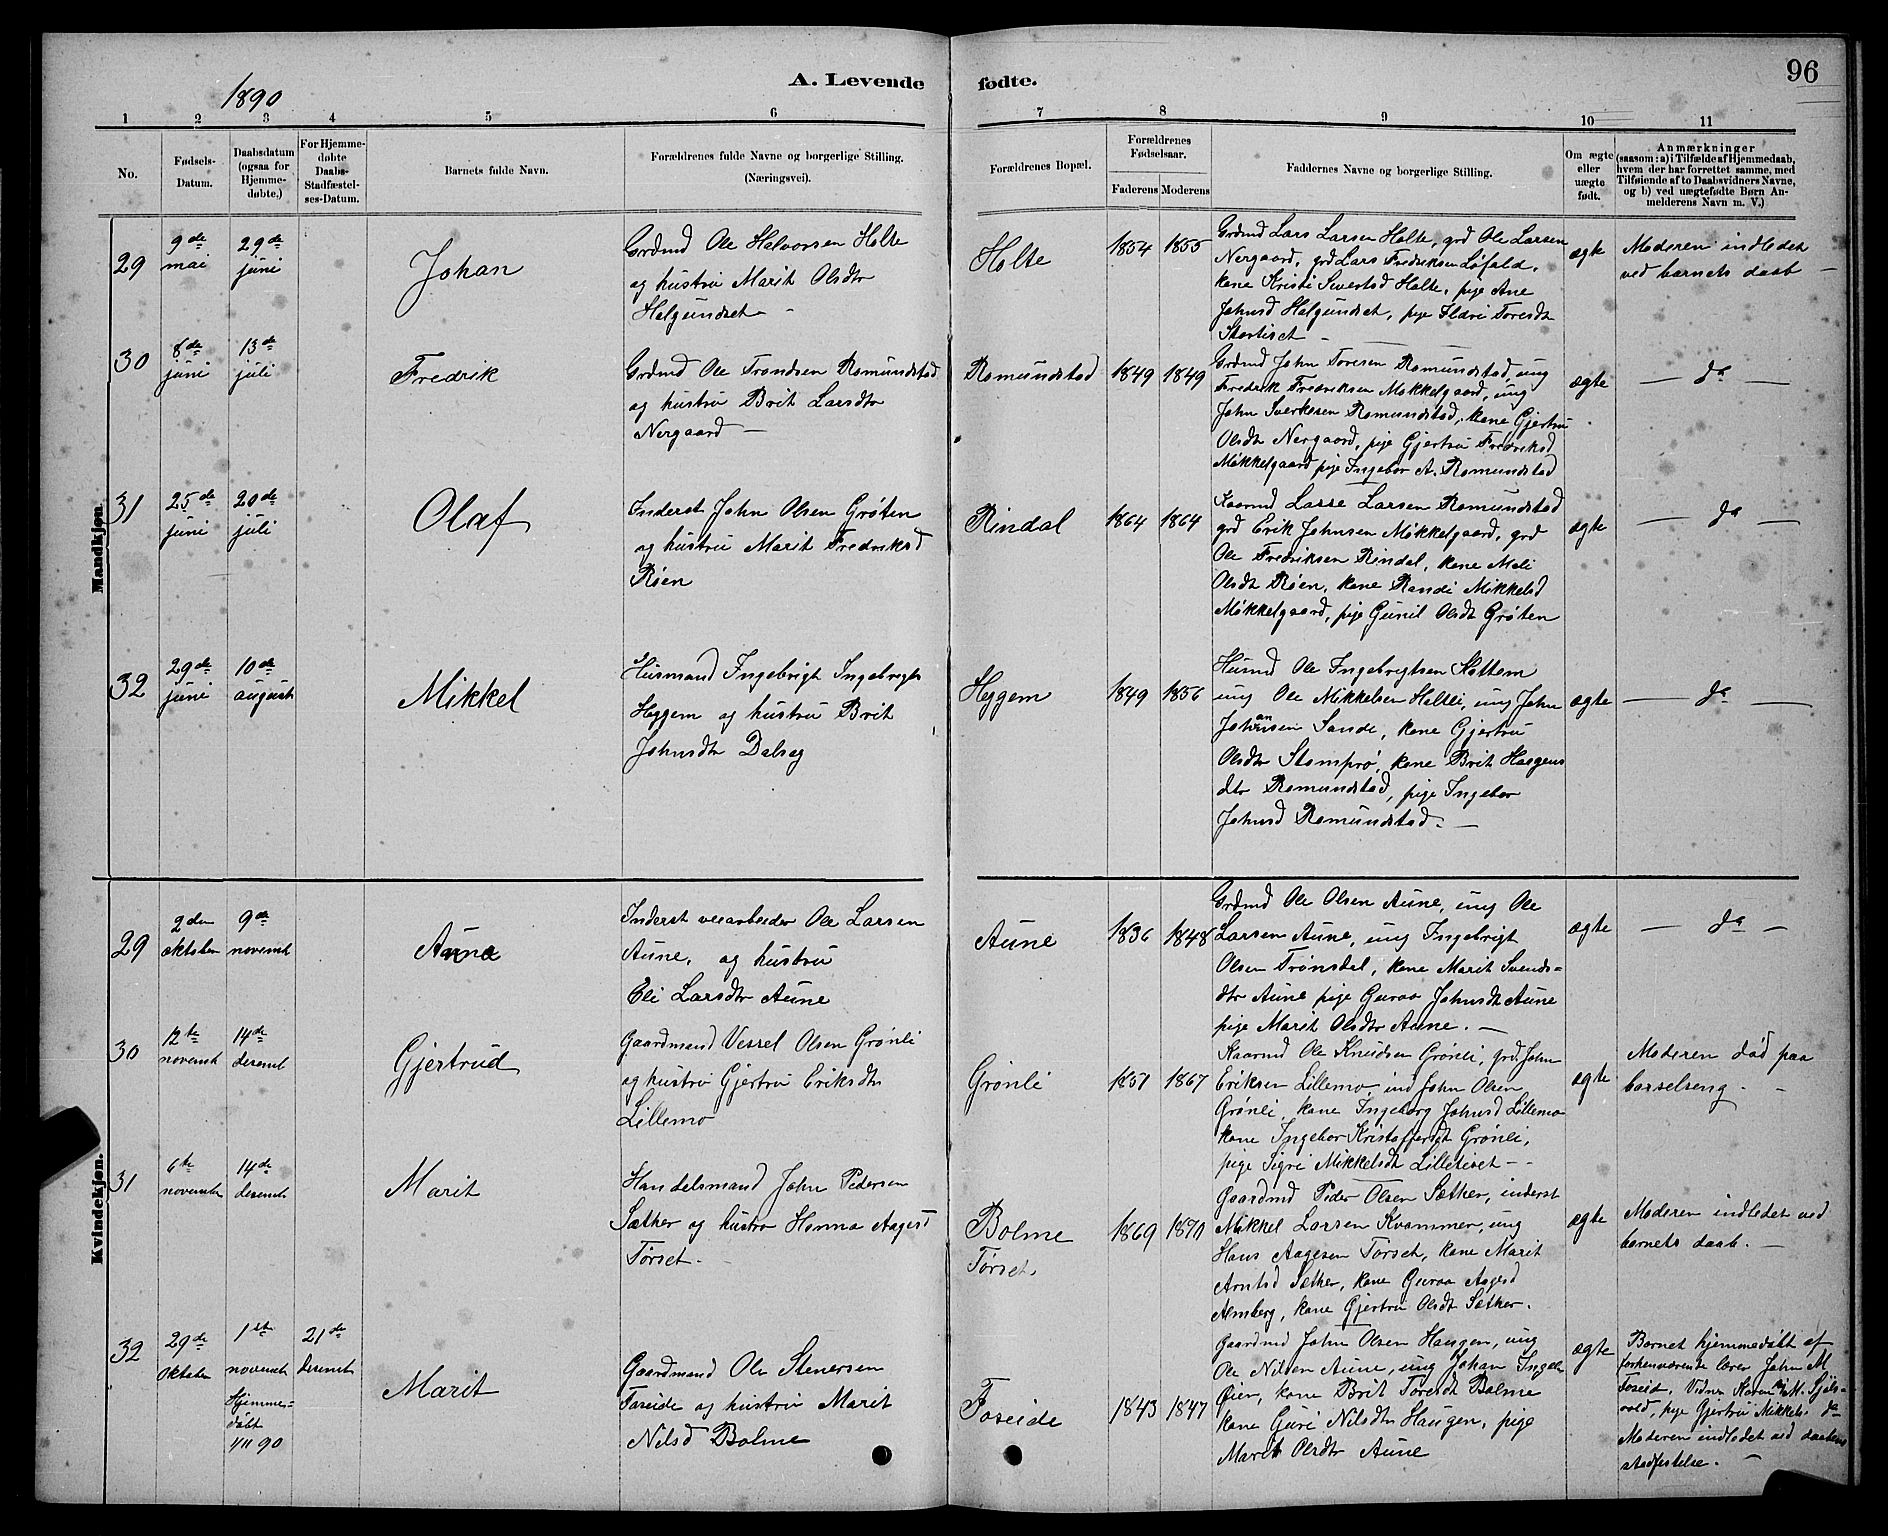 1890
A. Levende
fødte.
96
1 2 3 4 5 6 7 8 9 10 11
No.
Fødsels-
Datum.
Daabsdatum
(ogsaa for
Hjemme-
døbte.)
For Hjemme-
døbte
Daabs-
Stadfæstel-
ses-Datum.
Barnets fulde Navn.
Forældrenes fulde Navne og borgerlige Stilling.
(Næringsvei).
Forældrenes Bopæl.
Forældrenes
Fødselsaar.
Faderens Moderens
Faddernes Navne og borgerlige Stilling.
Om ægte
eller
uægte
født.
Anmærkninger
(saasom: a) i Tilfælde af Hjemmedaab,
hvem der har forrettet samme, med
Tilføiende af to Daabsvidners Navne,
og b) ved uægtefødte Børn An-
melderens Navn m. V.)
Mandkjøn.
29
9de
mai
29de
juni
Johan
Grdmd Ole Halvorsen Holte
og hustru Marit Olsdtr
Helgundset -
Holte
1854 1855
Grdmd Lars Larsen Holte, grd Ole Larsen
Nergaard, grd Lars Fredriksen Løfald,
kone Kristi Sivertsd Holte, pige Ane
Johnsd Helgundset, pige Ildri Toresdt
Stortiset -
ægte
Moderen indledet
ved barnets daab -
30
8de
juni
13de
juli
Fredrik
Grdmd Ole Trondsen Romundstad
og hustru Brit Larsdtr
Nergaard -
Romundstad
1849 1849
Grdmd John Toresen Romundstad, ung
Fredrik Fredriksen Møkkelgaard, ung
John Sverkesen Romundstad, kone Gjertru
Olsdt Nergaard, pige Gjertru Fredriksd
Møkkelgaard pige Ingebor A. Romundstad
ægte
- da -
31
25de
juni
20de
juli
Olaf
Inderst John Olsen Grøten
og hustru Marit Fredriksd
Røen
Rindal
1864 1864
Kaarmd Lasse Larsen Romundstad
grd Erik Johnsen Møkkelgaard, grd
Ole Fredriksen Rindal, kone Mali
Olsdt Røen, kone Randi Mikkelsd
Møkkelgaard, pige Gunil Olsdt Grøten
ægte
- da -
32
29de
juni
10de
august
Mikkel
Husmand Ingebrigt Ingebrigts
Heggem og hustru Brit
Johnsdtr Dalseg
Heggem
1849 1856
Husmd Ole Ingebrigtsen Kattem
ung Ole Mikkelsen Holtli, ung John
Johansen Sande, kone Gjertru
Olsdtr Stomprø, kone Brit Haagens
dtr Romundstad, pige Ingebor
Johnsd Romundstad. -
ægte
- da -
Kvindekjøn.
29
2den
oktober
9de
novembt
Anne
Inderst veiarbeider Ole Larsen
Aune, og hustru
Eli Larsdtr Aune
Aune
1836 1848
Grdmd Ole Olsen Aune, ung Ole
Larsen Aune, ung Ingebrigt
Olsen Trønsdal, kone Marit Svends-
dtr Aune pige Guroa Johnsdt Aune
pige Marit Olsdtr Aune. -
ægte
- da -
30
12te
novembt
14de
desembt
Gjertrud
Gaardmand Vessel Olsen Grønli
og hustru Gjertru Eriksdtr
Lillemo
Grønli
1851 1867
Kaarmd Ole Knudsen Grønli, grd. John
Eriksen Lillemo ind John Olsen
Grønli, kone Ingeborg Johnsd Lillemo
kone Ingebor Kristoffersdt Grønli,
pige Sigri Mikkelsdt Lilletiset - -
ægte
Moderen død paa
barselseng. -
31
6te
november
14de
desembt
Marit
Handelsmand John Pedersen
Sæther og hustru Hanna Aagesd
Tørset. -
Bolme
Tørset.
1869 1870
Gaardmd Peder Olsen Sæther, inderst
Mikkel Larsen Kvammen, ung
Hans Aagesen Tørset, kone Marit
Arntsd Sæther, kone Guroa Aagesd
Almberg, kone Gjertru Olsdt Sæther.
ægte
Moderen indledet ved
barnets daab. -
32
29de
oktober
1ste
novembt
Hjemme-
døbt
1/11 90
21de
desembt
Marit
Gaardmand Ole Stenersen
Foseide og hustru Marit
Nilsd Bolme
Foseide
1843 1847
Gaardmd John Olsen Haugen, ung
Ole Nilsen Aune, ung Johan Ingebr
Øien, kone Brit Toresdt Bolme
kone Guri Nilsdtr Haugen, pige
Marit Olsdtr Aune
ægte
Barnet hjemmedøbt af
forhenværende lærer John M
Foseid. Vidner Karen M. Sjøls-
vold, pige Gjertru Mikkels. da
Moderen indledet ved daabens
stadfestelse. -